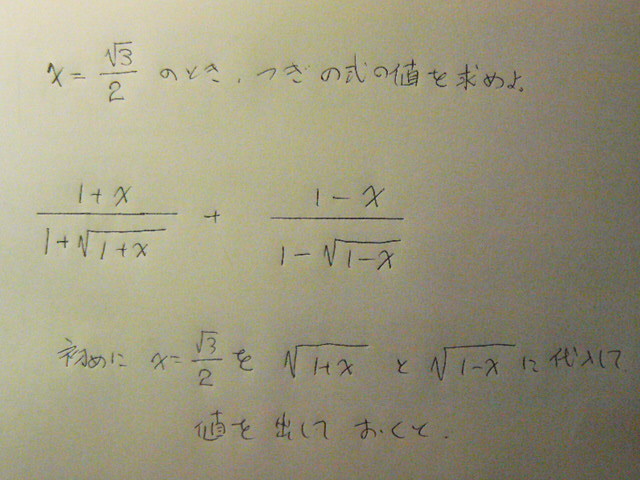 x = √3/2 のとき、つぎの式の値を求めよ。
(1+x)/(1+√(1+x)) + (1-x)/(1-√(1-x))
初めに x=√3/2 を √(1+x) と √(1-x) に代入して
値を出しておくと、